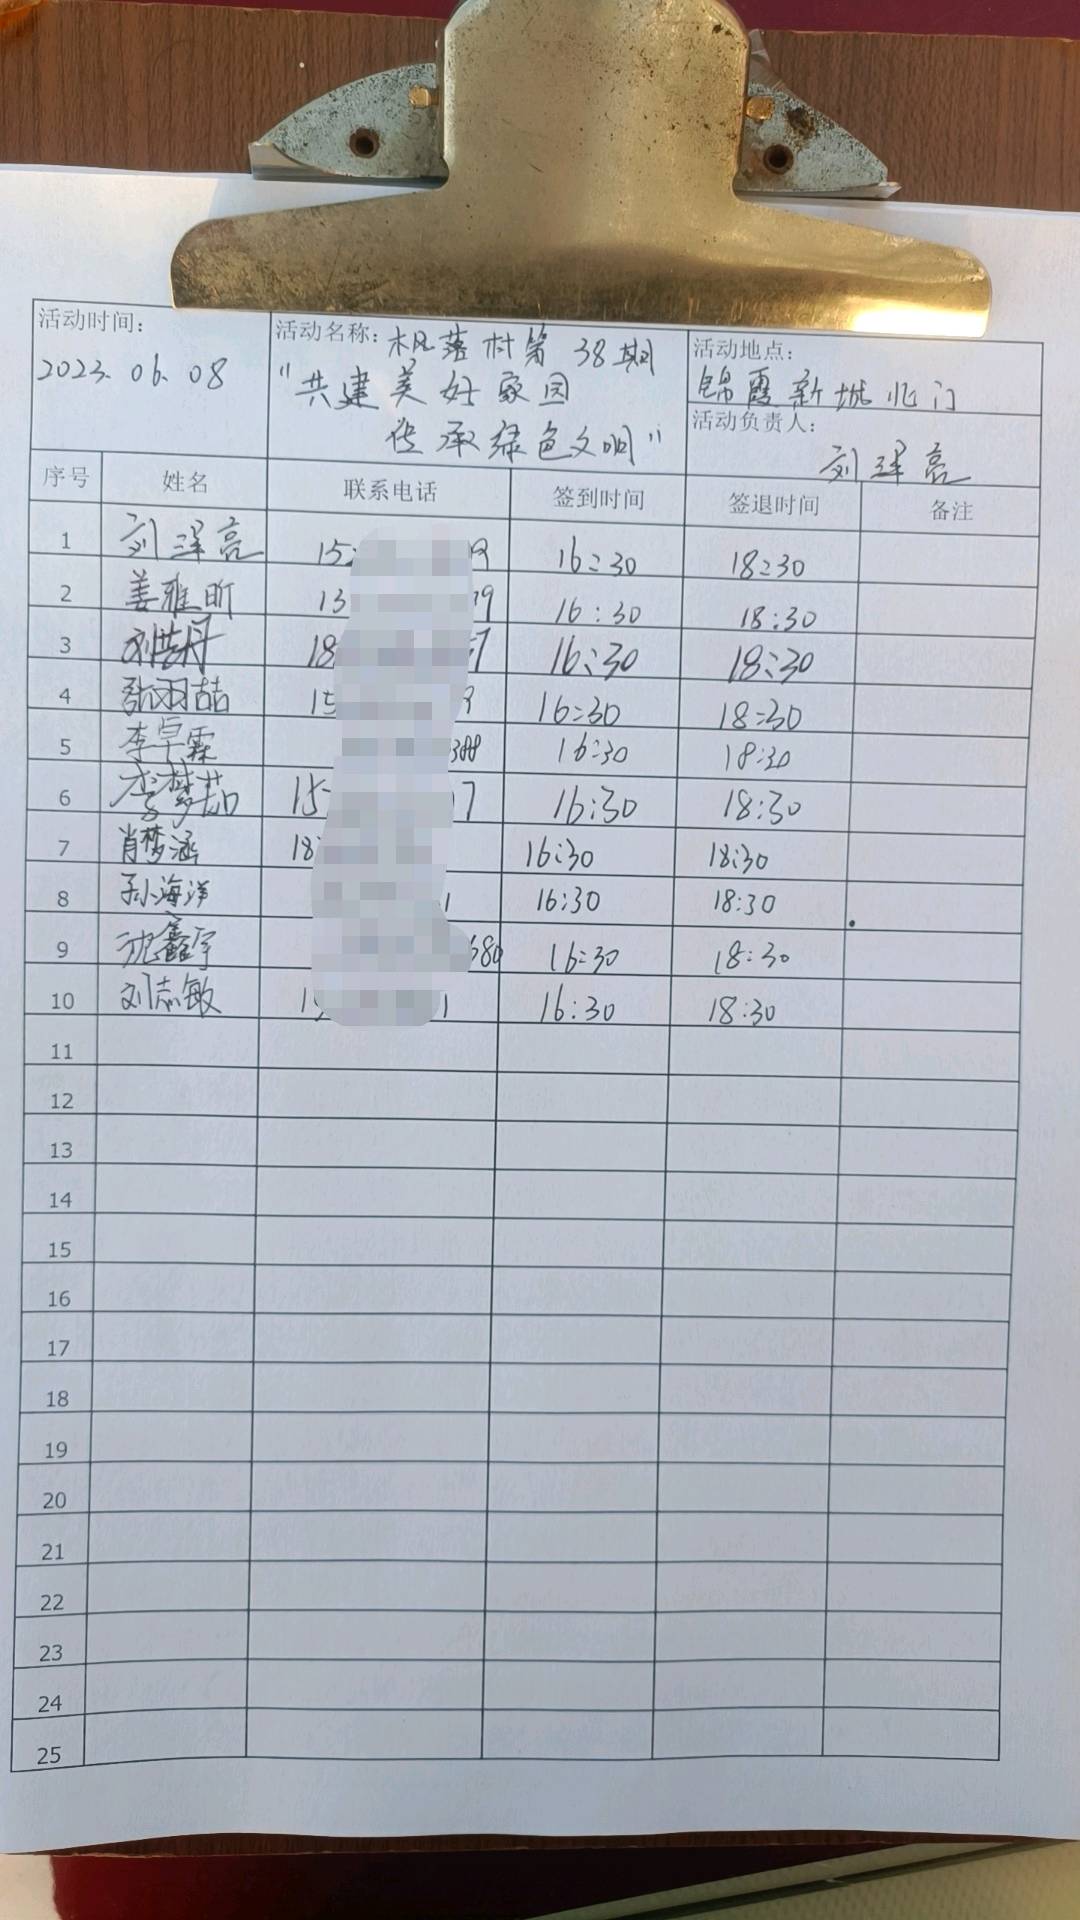 活动时间：
2023.06.08
活动名称：枫落村第38期
"共建美好家园
传承绿色文明"
活动地点：
锦霞新城北门
活动负责人：
刘泽亮
序号 姓名 联系电话 签到时间 签退时间 备注
1 刘泽亮 15 9 16:30 18:30
2 姜雅昕 13 39 16:30 18:30
3 18 7 16:30 18:30
4 张雨喆 15 9 16:30 18:30
5 李卓霖 388 16:30 18:30
6 李梦茹 15 7 16:30 18:30
7 肖梦涵 18 16:30 18:30
8 孙海洋 1 16:30 18:30
9 沈鑫宇 680 16:30 18:30
10 刘志敏 1 16:30 18:30
11
12
13
14
15
16
17
18
19
20
21
22
23
24
25